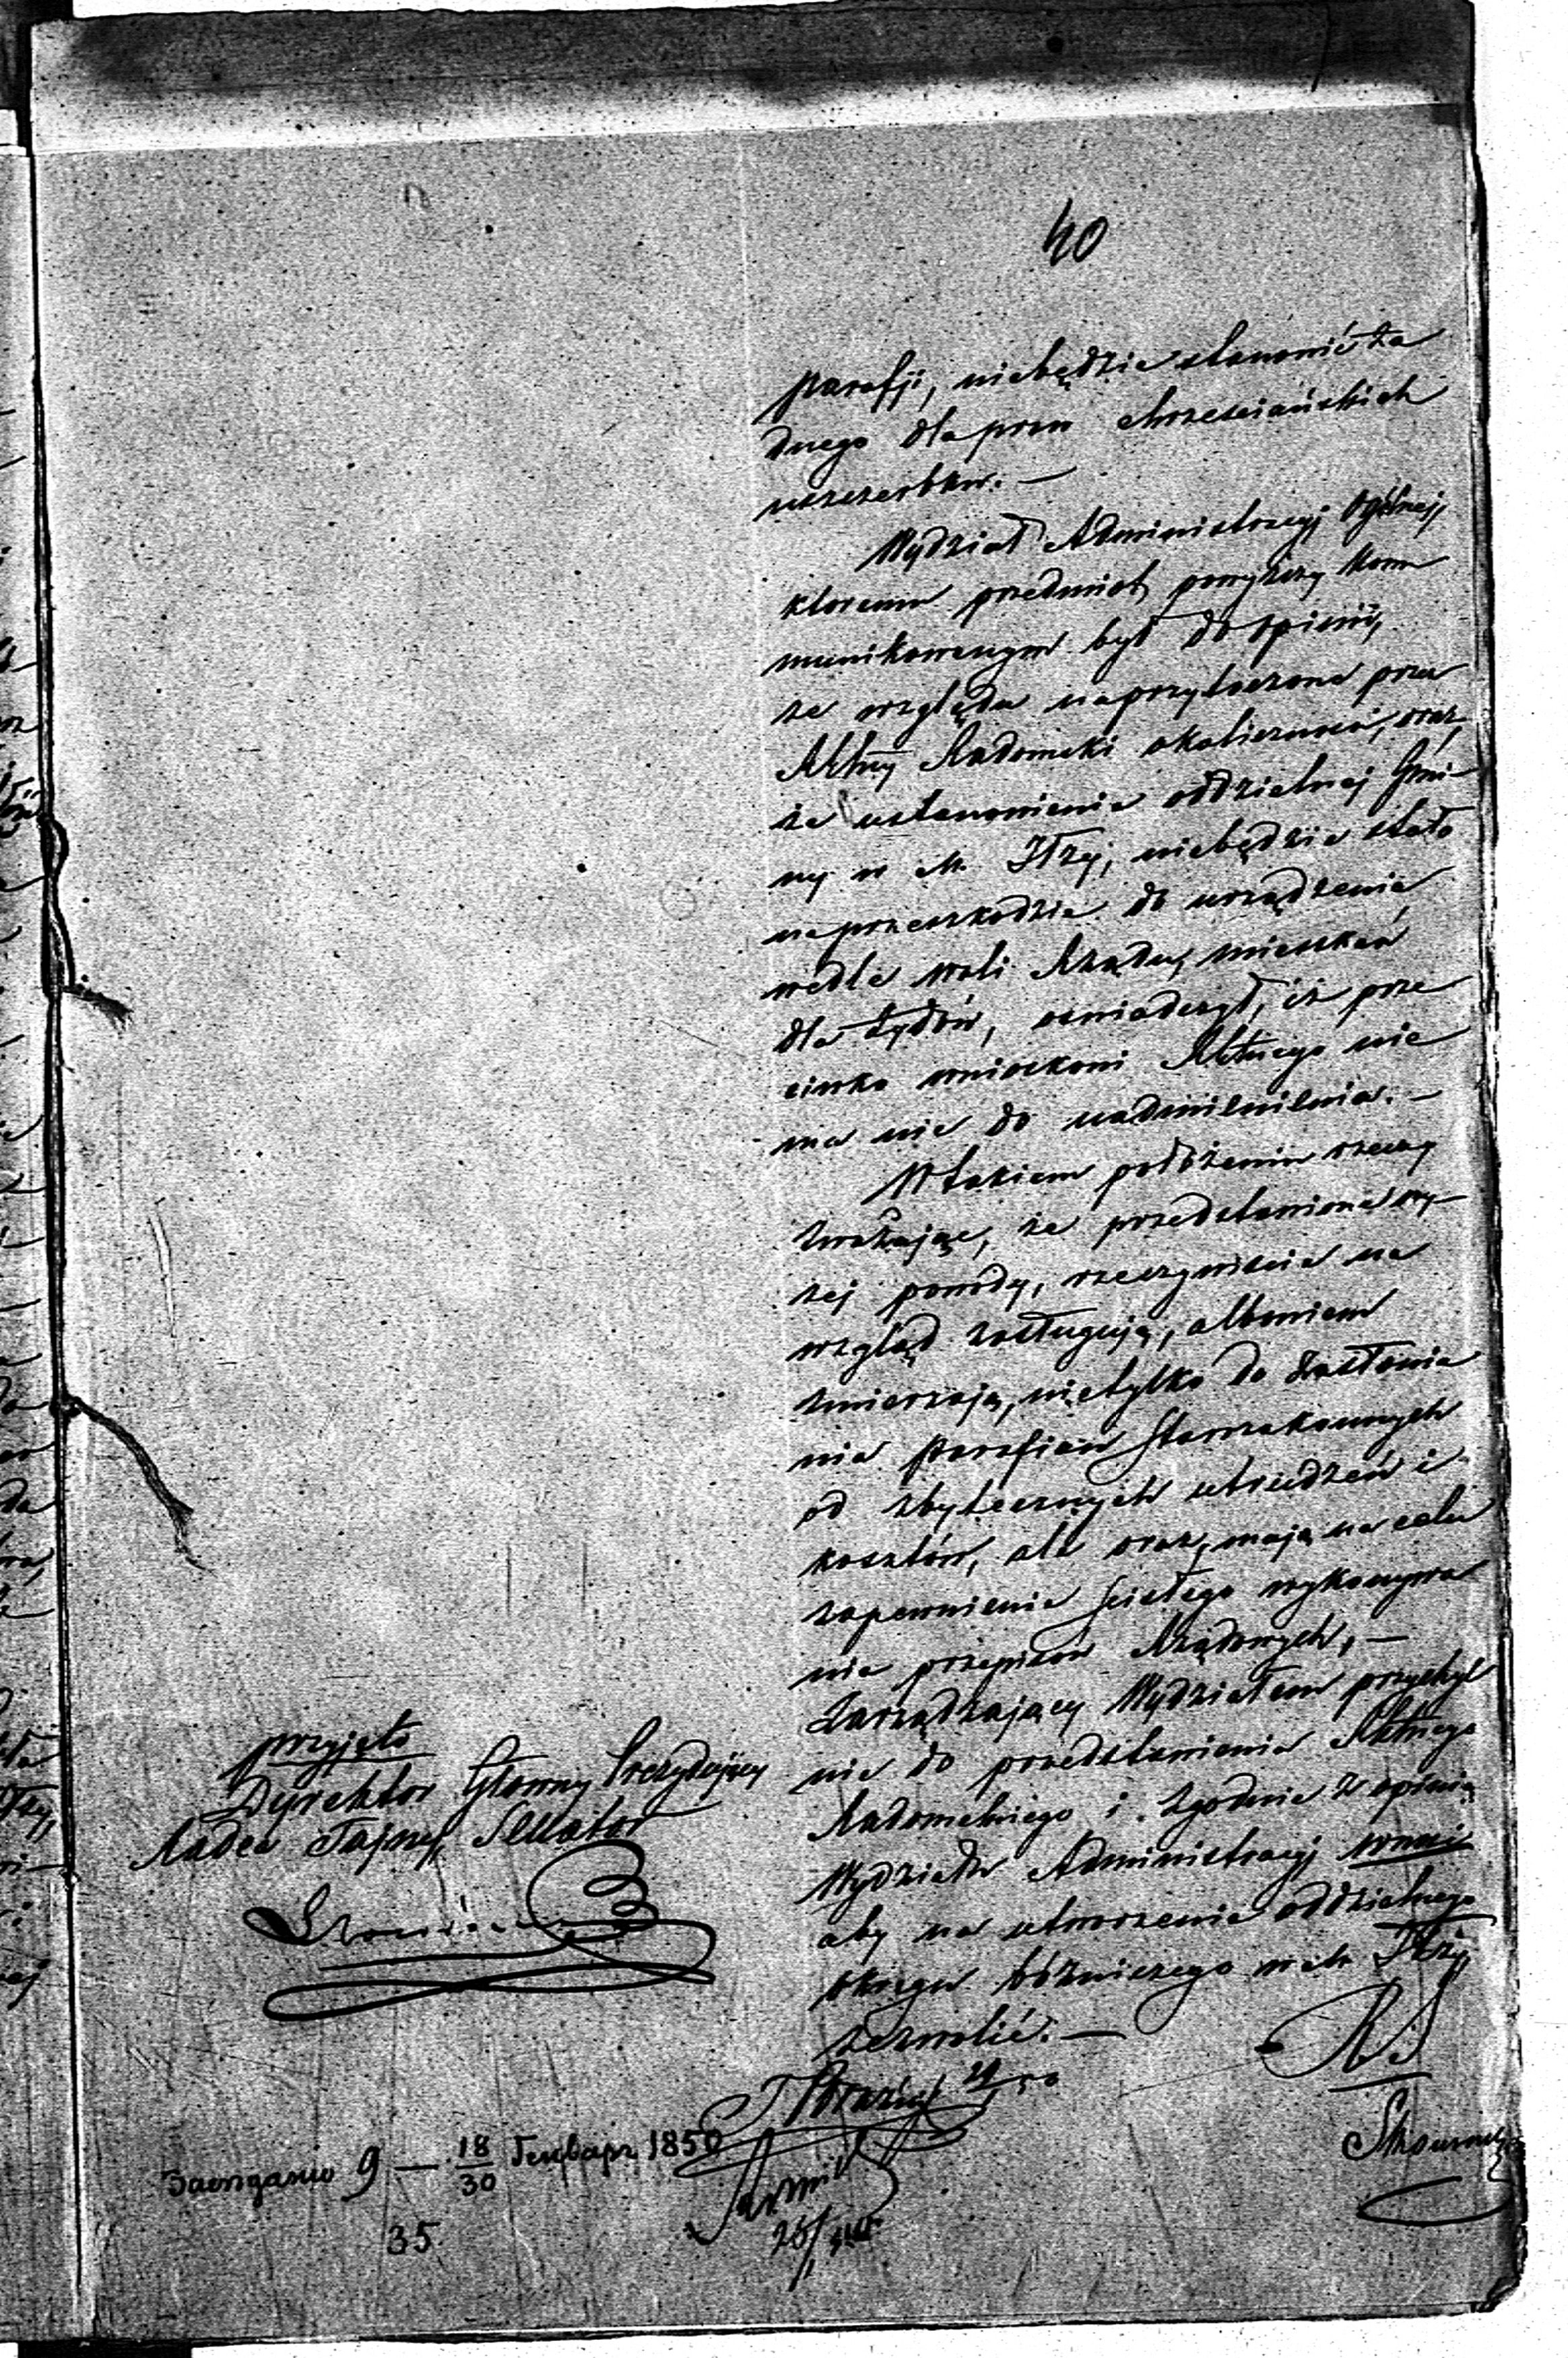 40
parafji, niebędzie stanowić ża
dnego dla praw chrześciańskich
uszczerbku. —
Wydział Administracyj Ogólnej,
któremu przedmiot powyższy kom
munikowanym był do opinii,
ze względu na przytoczone przez
Rttny Radomski okoliczności, oraz,
że ustanowienie oddzielnej Gmi-
ny w M. Iłży, niebędzie stało
na przeszkodzie do urządzenia
wedle woli Rządu, mieszkań
dla Żydów, oświadczył, iż prze
ciwko wnioskowi Rttnego nie
ma nic do nadmienienia. —
W takiem położeniu rzeczy
zważając, że przedstawione wy-
żej powody, rzeczywiście na
wzgląd zasługują, albowiem
zmierzają, nietylko do zasłonie
nia parafian Starozakonnych
od zbytecznych utrudzeń i
kosztów, ale oraz, mają na celu
zapewnienie ścisłego wykonywa
nia przepisów Rządowych, —
Zarządzający Wydziałem przychyl
nie do przedstawienia Rttnego
Radomskiego i zgodnie z opinią
Wydziału Administracyj wnosi
aby na utworzenie oddzielnego
okręgu bóżniczego w M. Iłży
zezwolić. —
przyjęto
Dyrektor Główny Prezydujący
Radca Tajny, Senator
Заседание 9 — 18/30 Генваря 1850
35